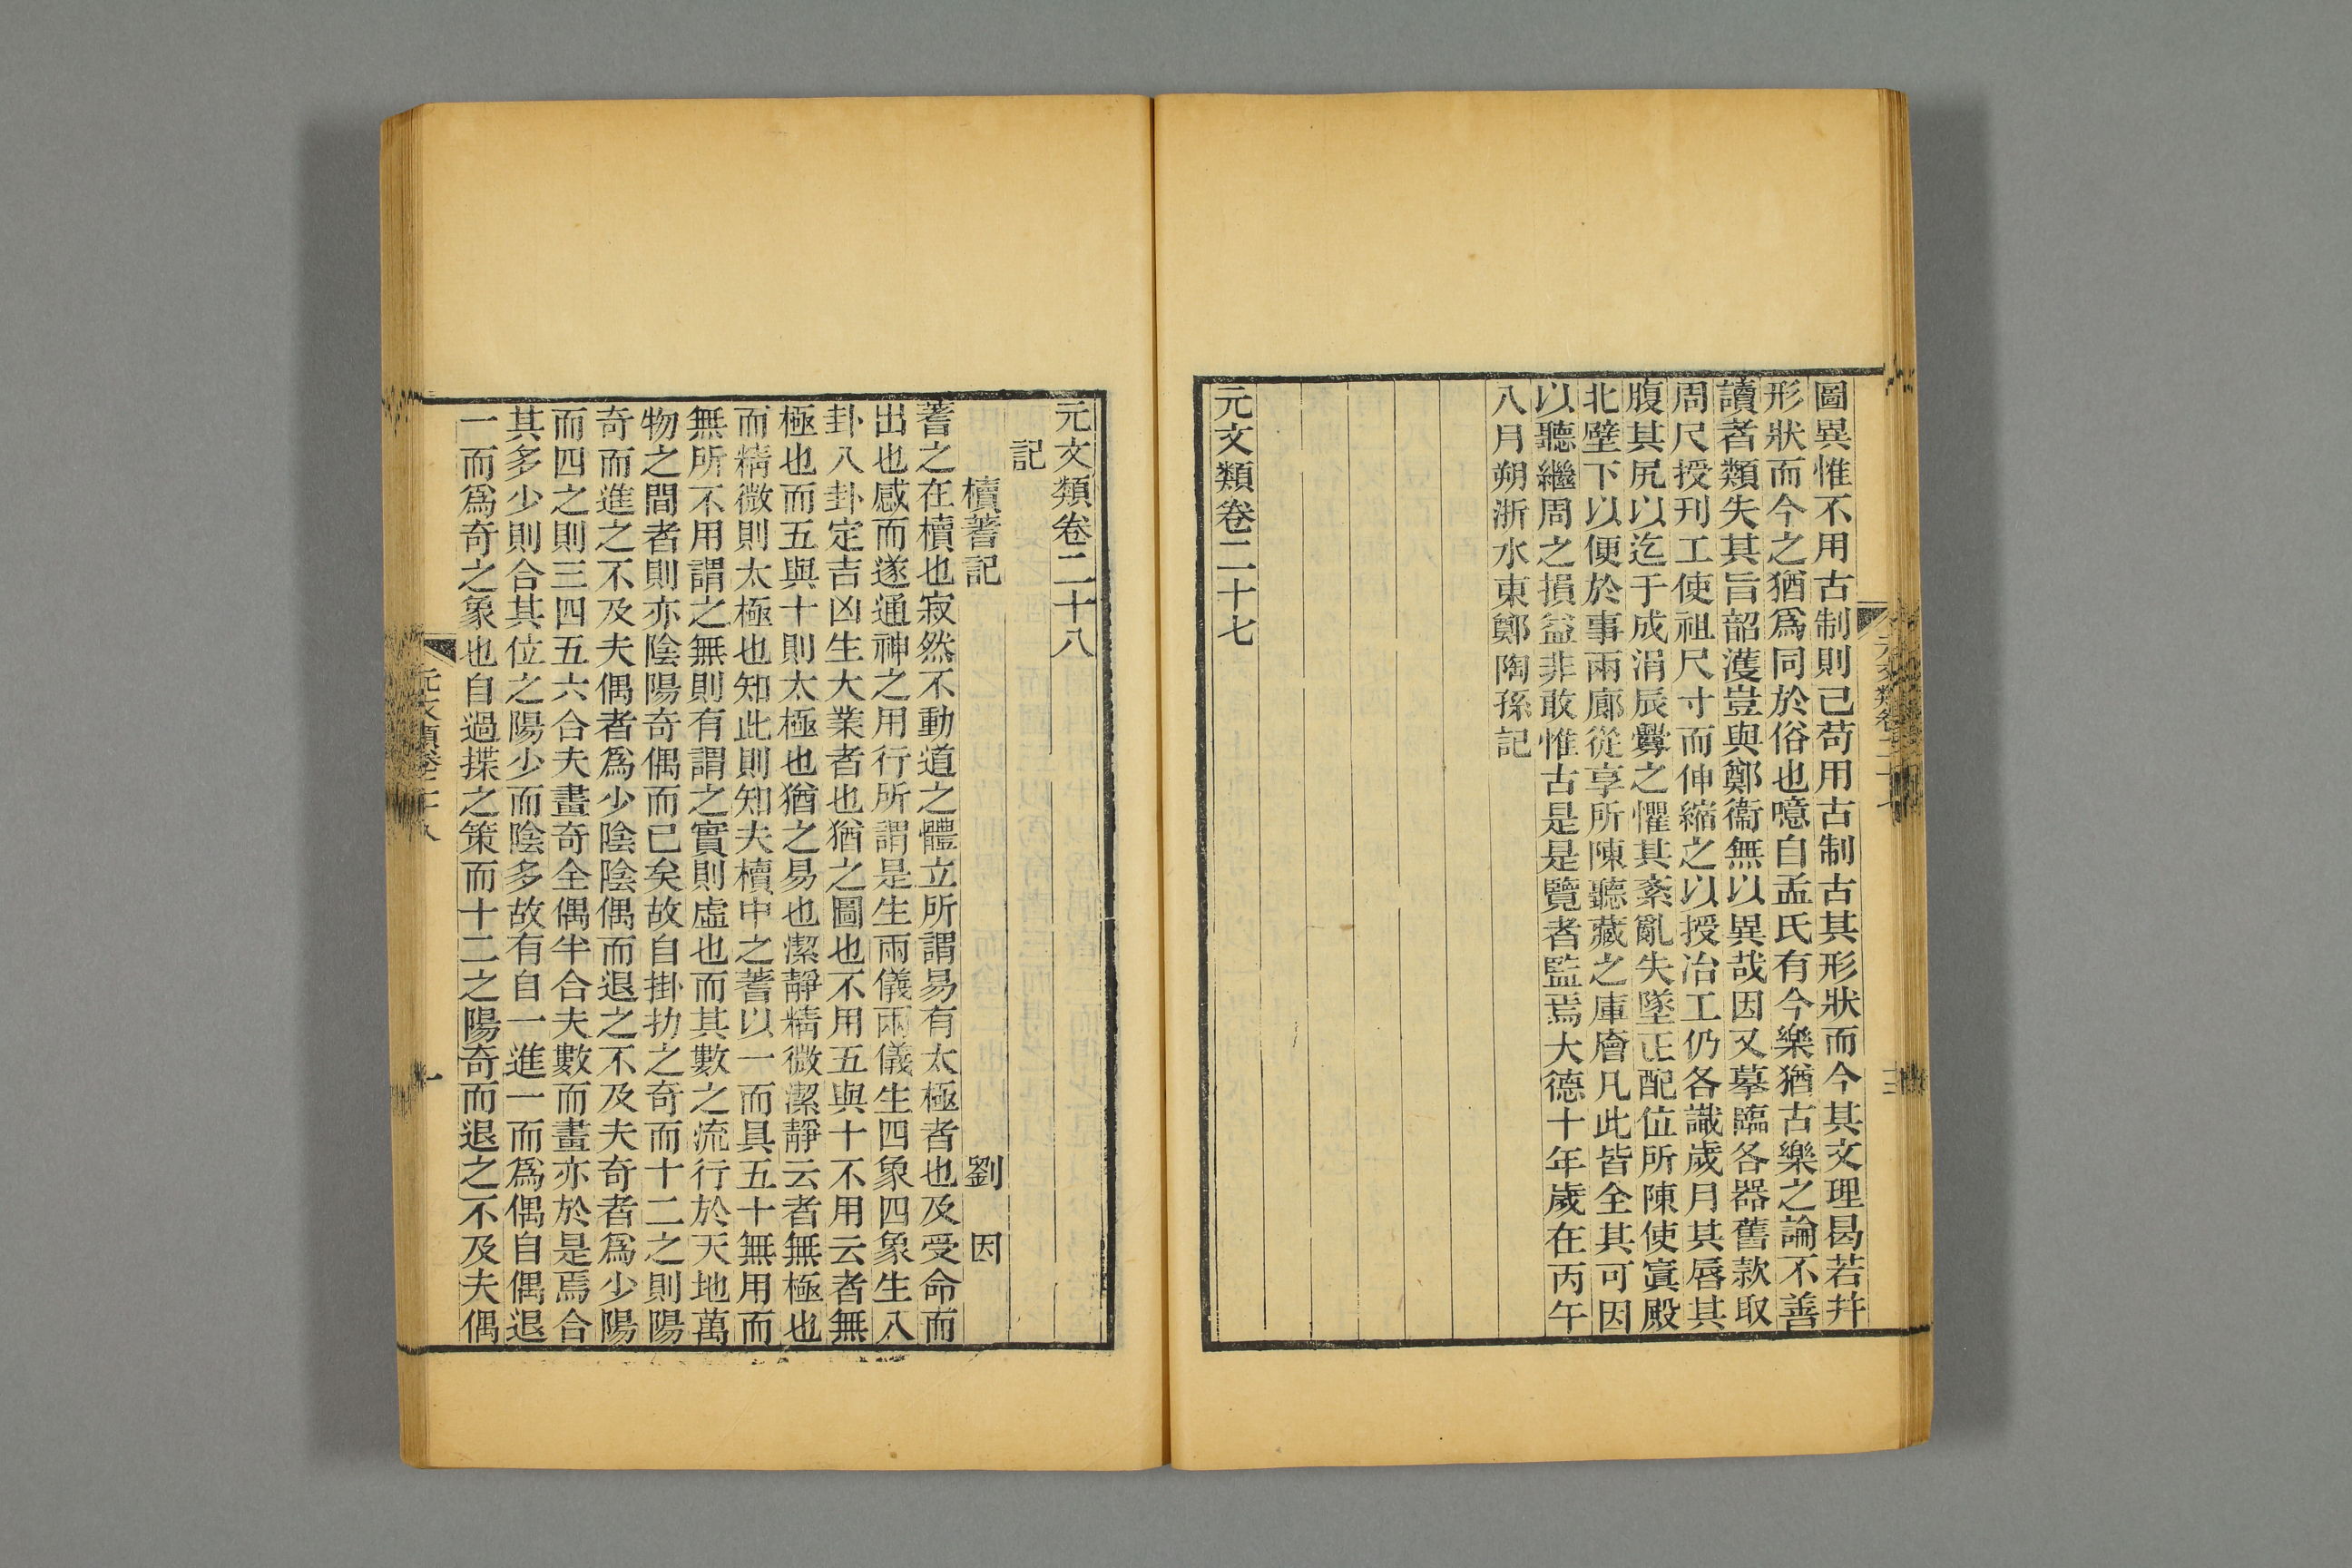 圖異惟不用古制則已苟用古制古其形狀而今其文理曷若幷
形狀而今之猶爲同於俗也噫自孟氏有今樂猶古樂之論不善
讀者類失其旨韶濩豈與鄭衞無以異哉因又摹臨各器舊款取
周尺授刊工使祖尺寸而伸縮之以授冶工仍各識歲月其唇其
腹其尻以迄于成涓辰釁之懼其紊亂失墜正配位所陳使寘殿
北壁下以便於事兩廊從享所陳聽藏之庫廥凡此皆全其可因
以聽繼周之損益非敢惟古是是覽者監焉大德十年歲在丙午
八月朔浙水東鄭陶孫記
元文類卷二十七
元文類卷二十七
十三
元文類卷二十八
記
櫝蓍記 劉因
蓍之在櫝也寂然不動道之體立所謂易有太極者也及受命而
出也感而遂通神之用行所謂是生兩儀兩儀生四象四象生八
卦八卦定吉凶生大業者也猶之圖也不用五與十不用云者無
極也而五與十則太極也猶之易也潔靜精微潔靜云者無極也
而精微則太極也知此則知夫櫝中之蓍以一而具五十無用而
無所不用謂之無則有謂之實則虛也而其數之流行於天地萬
物之間者則亦陰陽奇偶而已矣故自掛扐之奇而十二之則陽
奇而進之不及夫偶者爲少陰陰偶而退之不及夫奇者爲少陽
而四之則三四五六合夫畫奇全偶半合夫數而畫亦於是焉合
其多少則合其位之陽少而陰多故有自一進一而爲偶自偶退
一而爲奇之象也自過揲之策而十二之陽奇而退之不及夫偶
元文類卷二十八
一